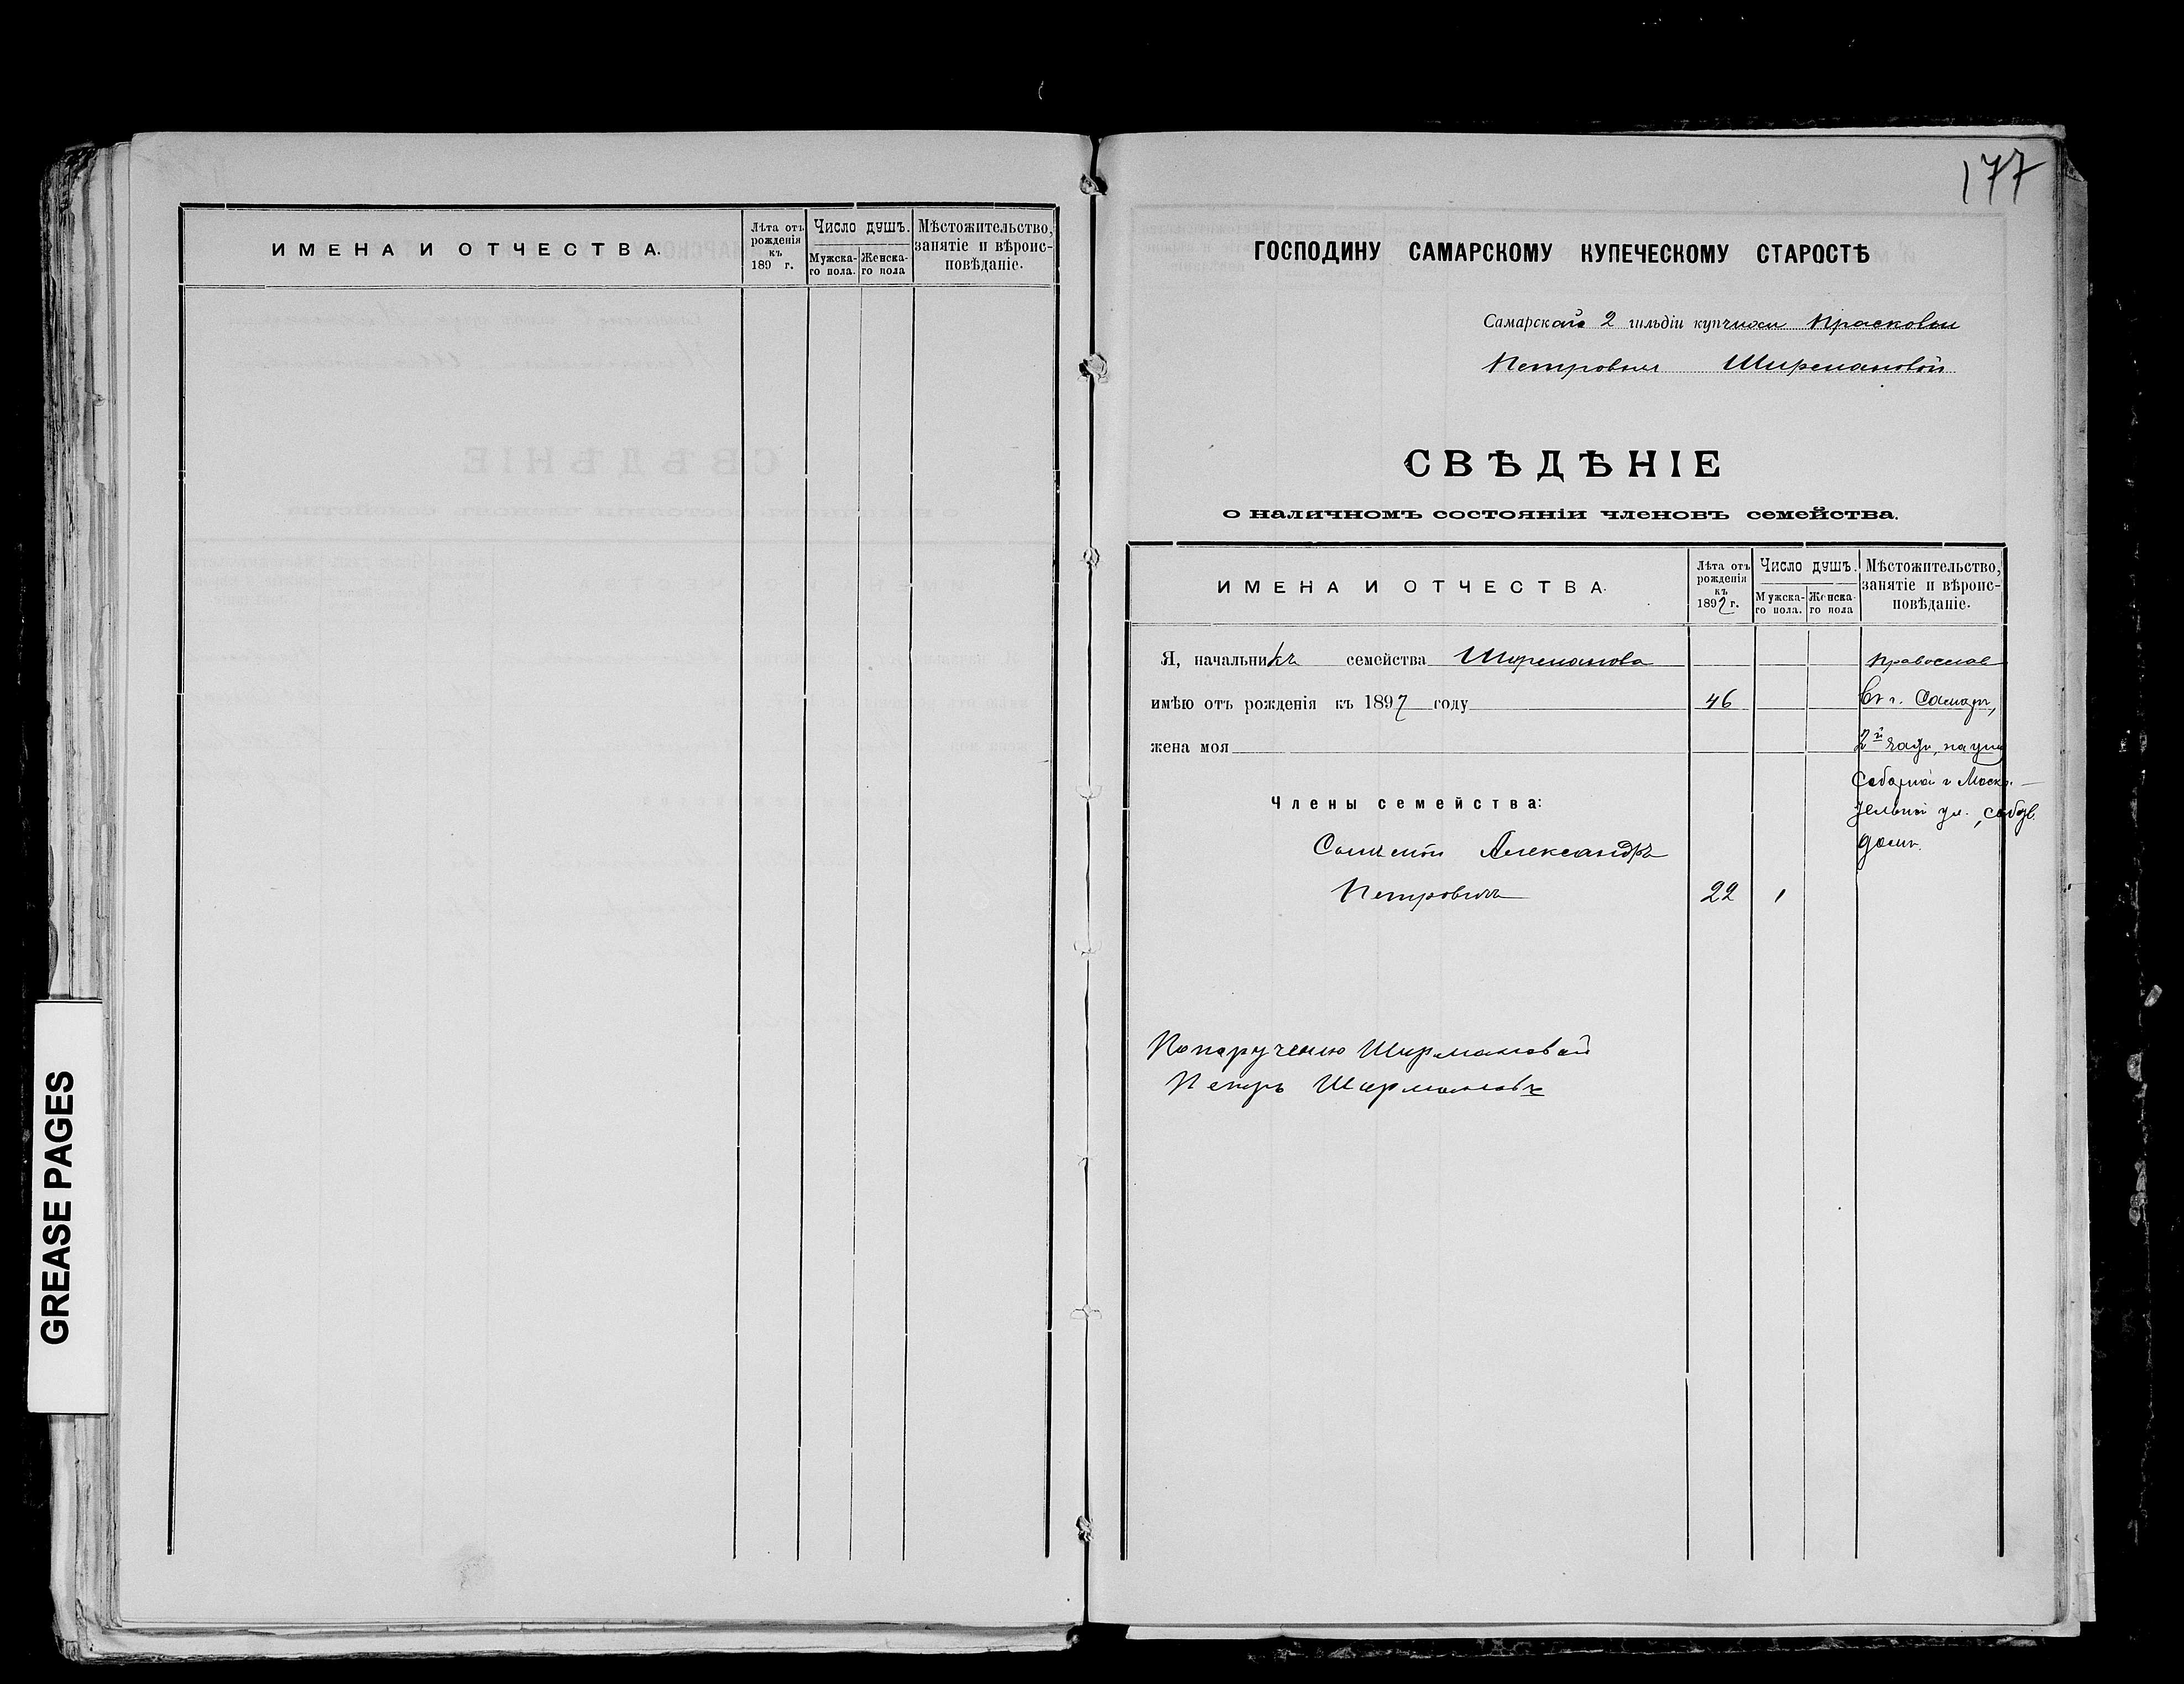 ИМЕНА И ОТЧЕСТВА.
Лѣта отъ рожденія къ 189 г.
Число душъ.
Мужска-го пола.
Женска-го пола
Мѣстожительство, занятіе и вѣроис-повѣданіе.
GREASE PAGES
177
ГОСПОДИНУ САМАРСКОМУ КУПЕЧЕСКОМУ СТАРОСТѢ
Самарской 2 гильдіи купчихи Прасковьи
Петровны Ширмановой
СВѢДѢНІЕ
о наличномъ состояніи членовъ семейства.
ИМЕНА И ОТЧЕСТВА.
Лѣта отъ рожденія къ 1897 г.
Число душъ.
Мужска-го пола.
Женска-го пола
Мѣстожительство, занятіе и вѣроис-повѣданіе.
Я, начальникъ семейства Ширманова
Православ
имѣю отъ рожденія къ 1897 году 46
Въ г. Самарѣ,
жена моя
2й части, на углу
Соборной и Москa-
Члены семейства:
тельной ул., собств.
Сынъ мой Александръ
домъ.
Петровичъ 22 1
По порученію Ширмановой
Петръ Ширмановъ